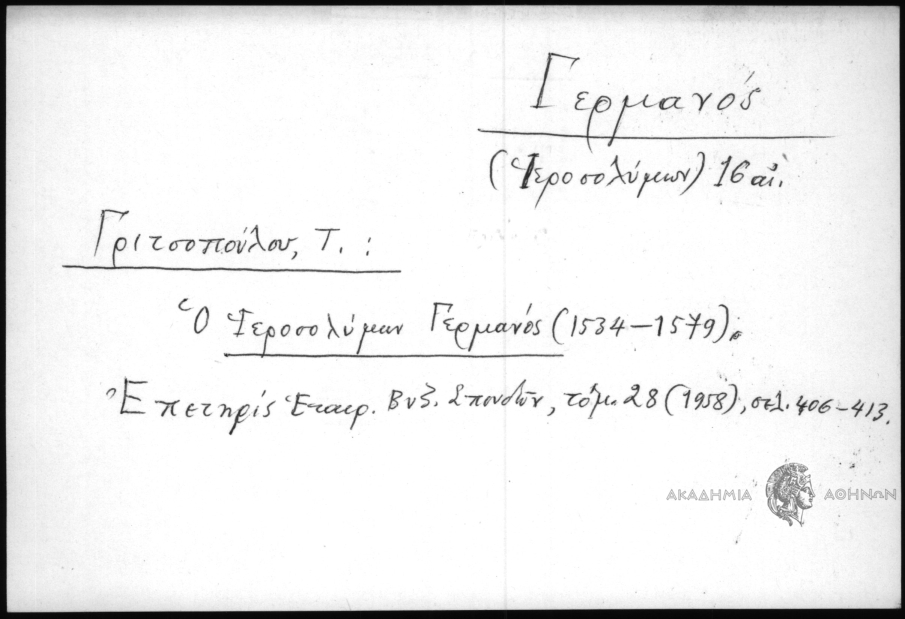 Γερμανός
(Ἱεροσολύμων) 16 αἰ.
Γριτσοπούλου, Τ. :
Ὁ Ἱεροσολύμων Γερμανός (1534-1579).
Ἐπετηρίς Ἑταιρ. Βυζ. Σπουδῶν, τόμ. 28 (1958), σελ. 406-413.
ΑΚΑΔΗΜΙΑ ΑΘΗΝΩΝ